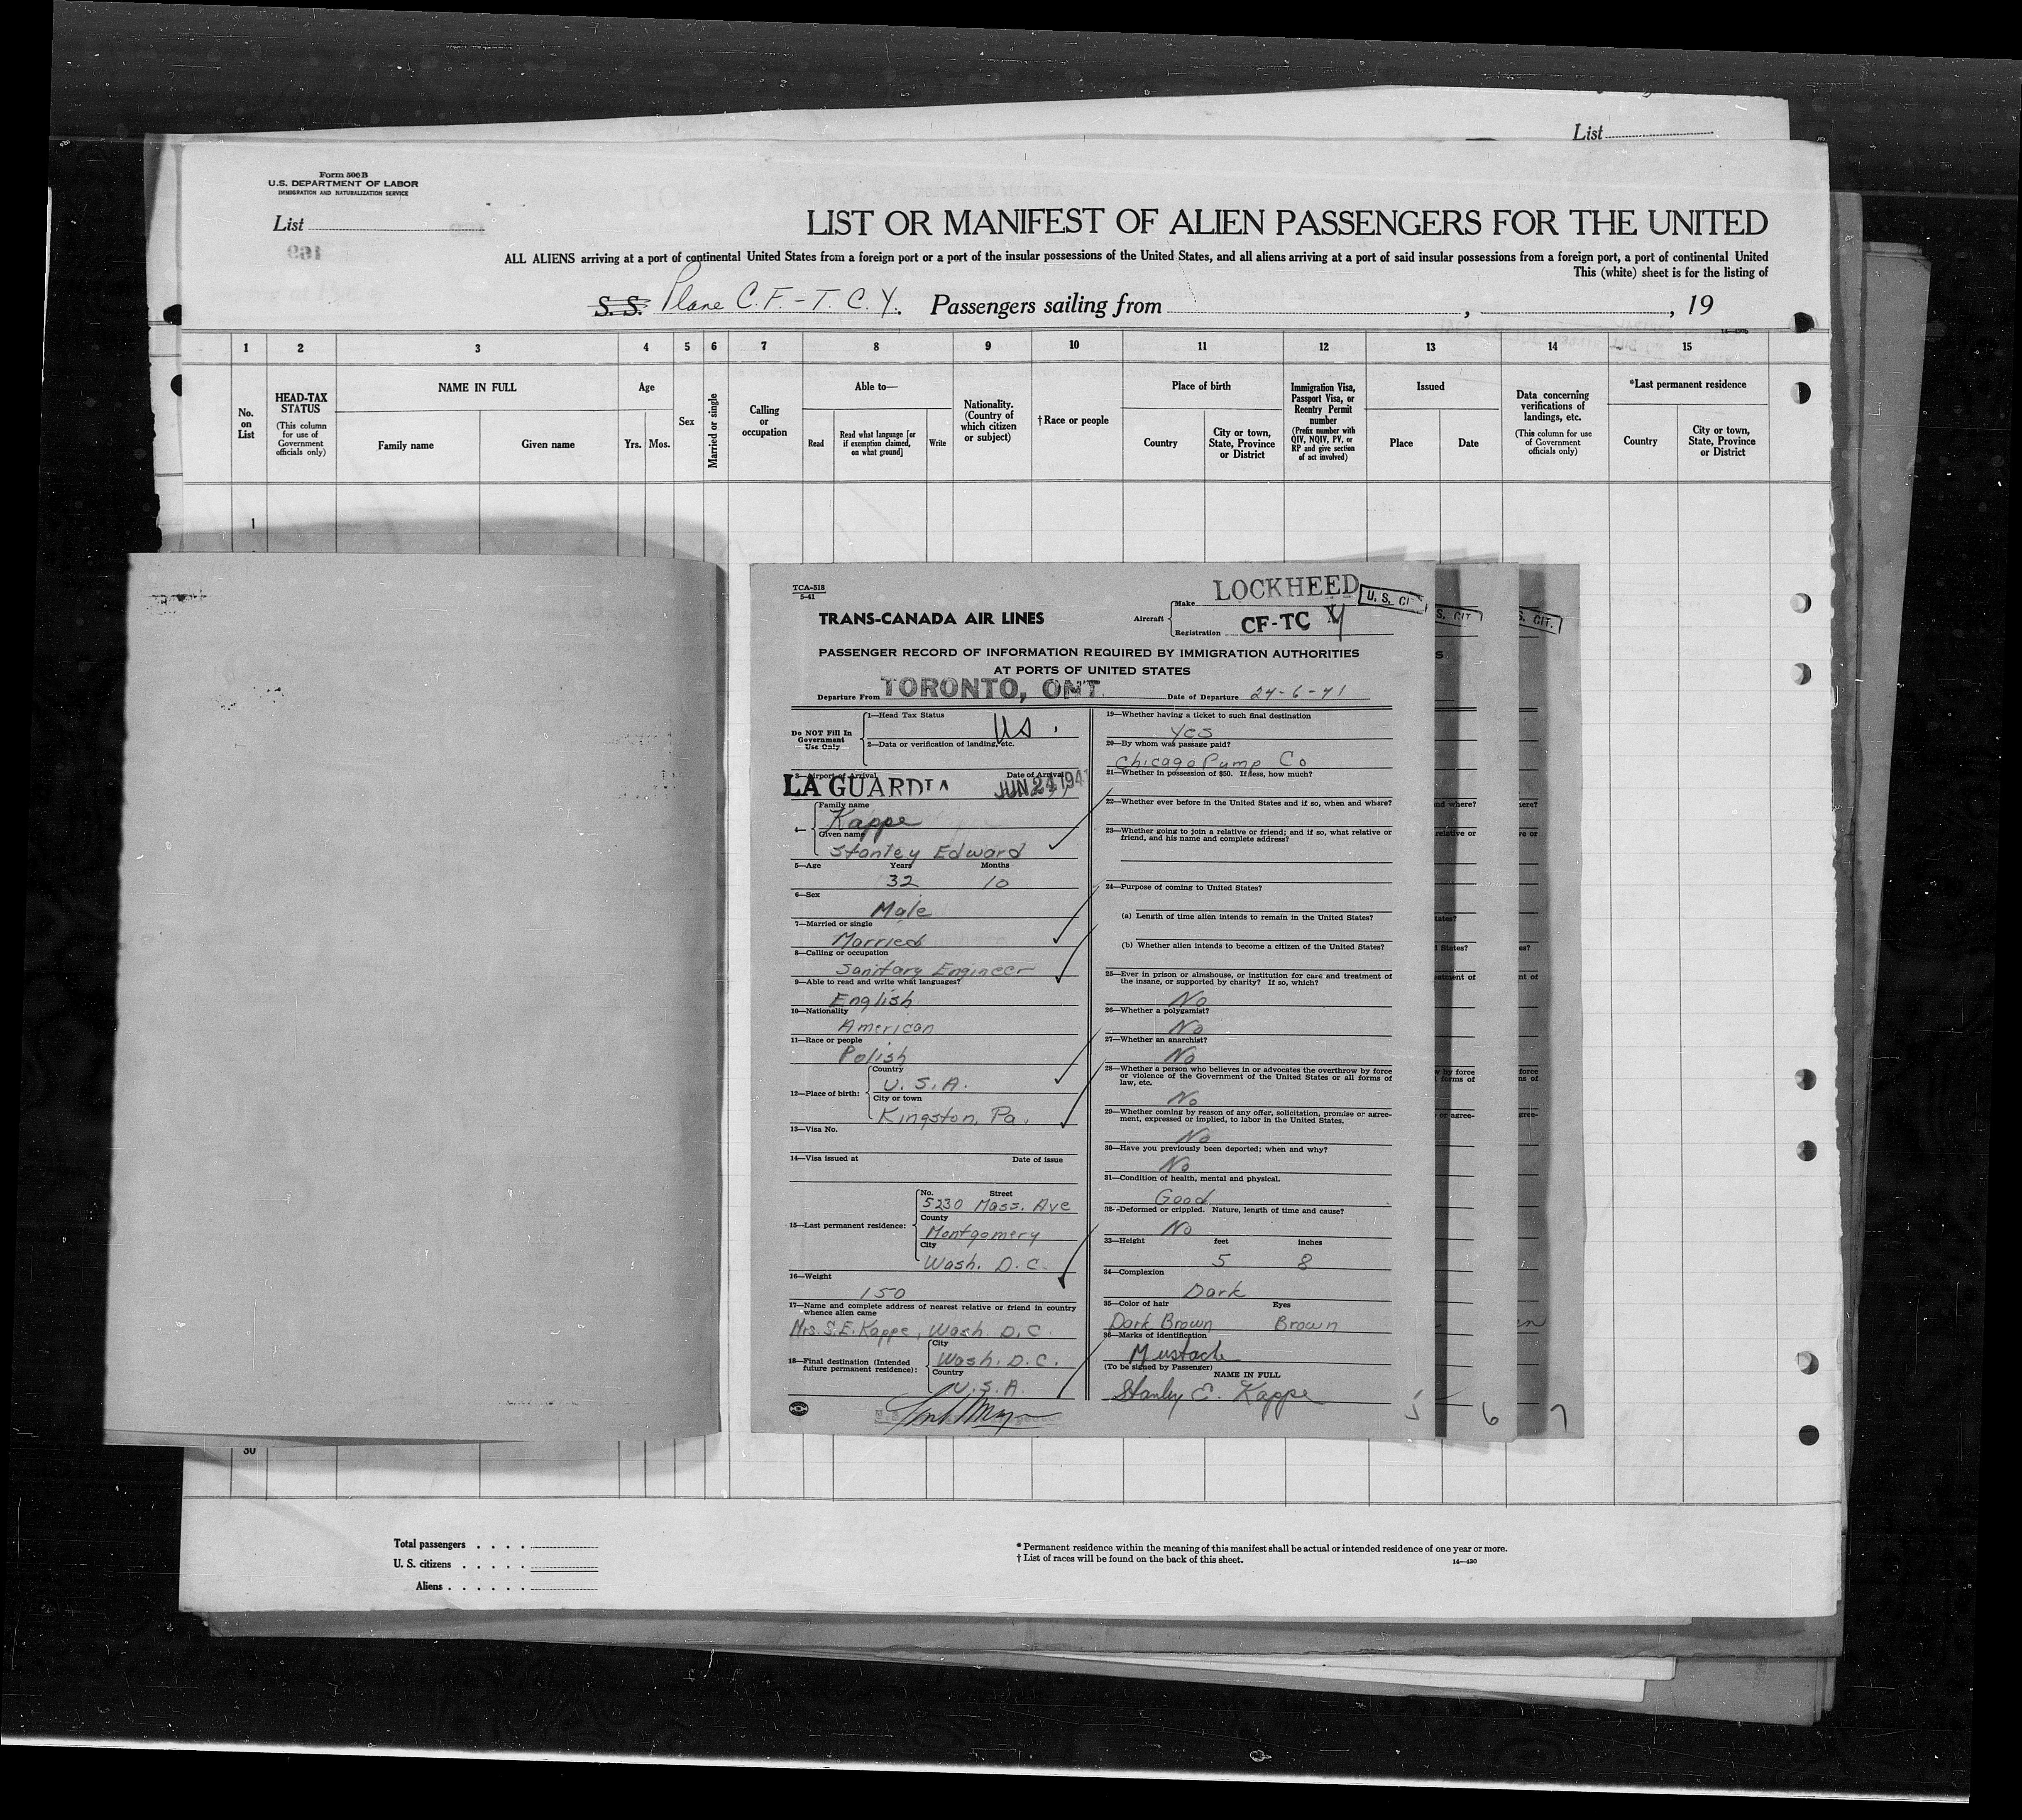 List
Form 500B
U.S. DEPARTMENT OF LABOR
IMMIGRATION AND NATURALIZATION SERVICE
List
LIST OR MANIFEST OF ALIEN PASSENGERS FOR THE UNITED
ALL ALIENS arriving at a port of continental United States from a foreign port or a port of the insular possessions of the United States, and all aliens arriving at a port of said insular possessions from a foreign port, a port of continental United
This (white) sheet is for the listing of
S. S. Plane C.F.-T.C.Y. Passengers sailing from , , 19
1 2 3 4 5 6 7 8 9 10 11 12 13 14 15
No. on List
HEAD-TAX STATUS
(This column for use of Government officials only)
NAME IN FULL
Family name Given name
Age
Yrs. Mos.
Sex
Married or single
Calling or occupation
Able to—
Read
Read what language [or if exemption claimed, on what ground]
Write
Nationality. (Country of which citizen or subject)
†Race or people
Place of birth
Country
City or town, State, Province or District
Immigration Visa, Passport Visa, or Reentry Permit number
(Prefix number with QIV, NQIV, PV, or RP and give section of act involved)
Issued
Place Date
Data concerning verifications of landings, etc.
(This column for use of Government officials only)
*Last permanent residence
Country
City or town, State, Province or District
1
TCA-518
5-41
TRANS-CANADA AIR LINES
Aircraft
Make LOCKHEED
U. S. CI
S. CIT
S. CIT.
Registration CF-TC Y
PASSENGER RECORD OF INFORMATION REQUIRED BY IMMIGRATION AUTHORITIES
AT PORTS OF UNITED STATES
Departure From TORONTO, ONT. Date of Departure 24-6-41
Do NOT Fill In Government Use Only
1—Head Tax Status
US.
2—Data or verification of landing, etc.
3—Airport of Arrival Date of Arrival
LA GUARDIA JUN 24 194
4—
Family name
Kappe
Given name
Stanley Edward
5—Age Years Months
32 10
6—Sex
Male
7—Married or single
Married
8—Calling or occupation
Sanitary Engineer
9—Able to read and write what languages?
English
10—Nationality
American
11—Race or people
Polish
12—Place of birth:
Country
U. S. A.
City or town
Kingston, Pa.
13—Visa No.
14—Visa issued at Date of issue
15—Last permanent residence:
No. Street
5230 Mass. Ave
County
Montgomery
City
Wash. D.C.
16—Weight
150
17—Name and complete address of nearest relative or friend in country whence alien came
Mrs. S.E. Kappe, Wash. D.C.
18—Final destination (Intended future permanent residence):
City
Wash. D.C.
Country
U.S.A.
19—Whether having a ticket to such final destination
Yes
20—By whom was passage paid?
Chicago Pump Co
21—Whether in possession of $50. If less, how much?
22—Whether ever before in the United States and if so, when and where?
23—Whether going to join a relative or friend; and if so, what relative or friend, and his name and complete address?
24—Purpose of coming to United States?
(a) Length of time alien intends to remain in the United States?
(b) Whether alien intends to become a citizen of the United States?
25—Ever in prison or almshouse, or institution for care and treatment of the insane, or supported by charity? If so, which?
No
26—Whether a polygamist?
No
27—Whether an anarchist?
No
28—Whether a person who believes in or advocates the overthrow by force or violence of the Government of the United States or all forms of law, etc.
No
29—Whether coming by reason of any offer, solicitation, promise or agreement, expressed or implied, to labor in the United States.
No
30—Have you previously been deported; when and why?
No
31—Condition of health, mental and physical.
Good
32—Deformed or crippled. Nature, length of time and cause?
No
33—Height feet inches
5 8
34—Complexion
Dark
35—Color of hair Eyes
Dark Brown Brown
36—Marks of identification
Mustach
(To be signed by Passenger)
NAME IN FULL
Stanley E. Kappe
5 6 7
30
Total passengers
U. S. citizens
Aliens
* Permanent residence within the meaning of this manifest shall be actual or intended residence of one year or more.
† List of races will be found on the back of this sheet.
14—430